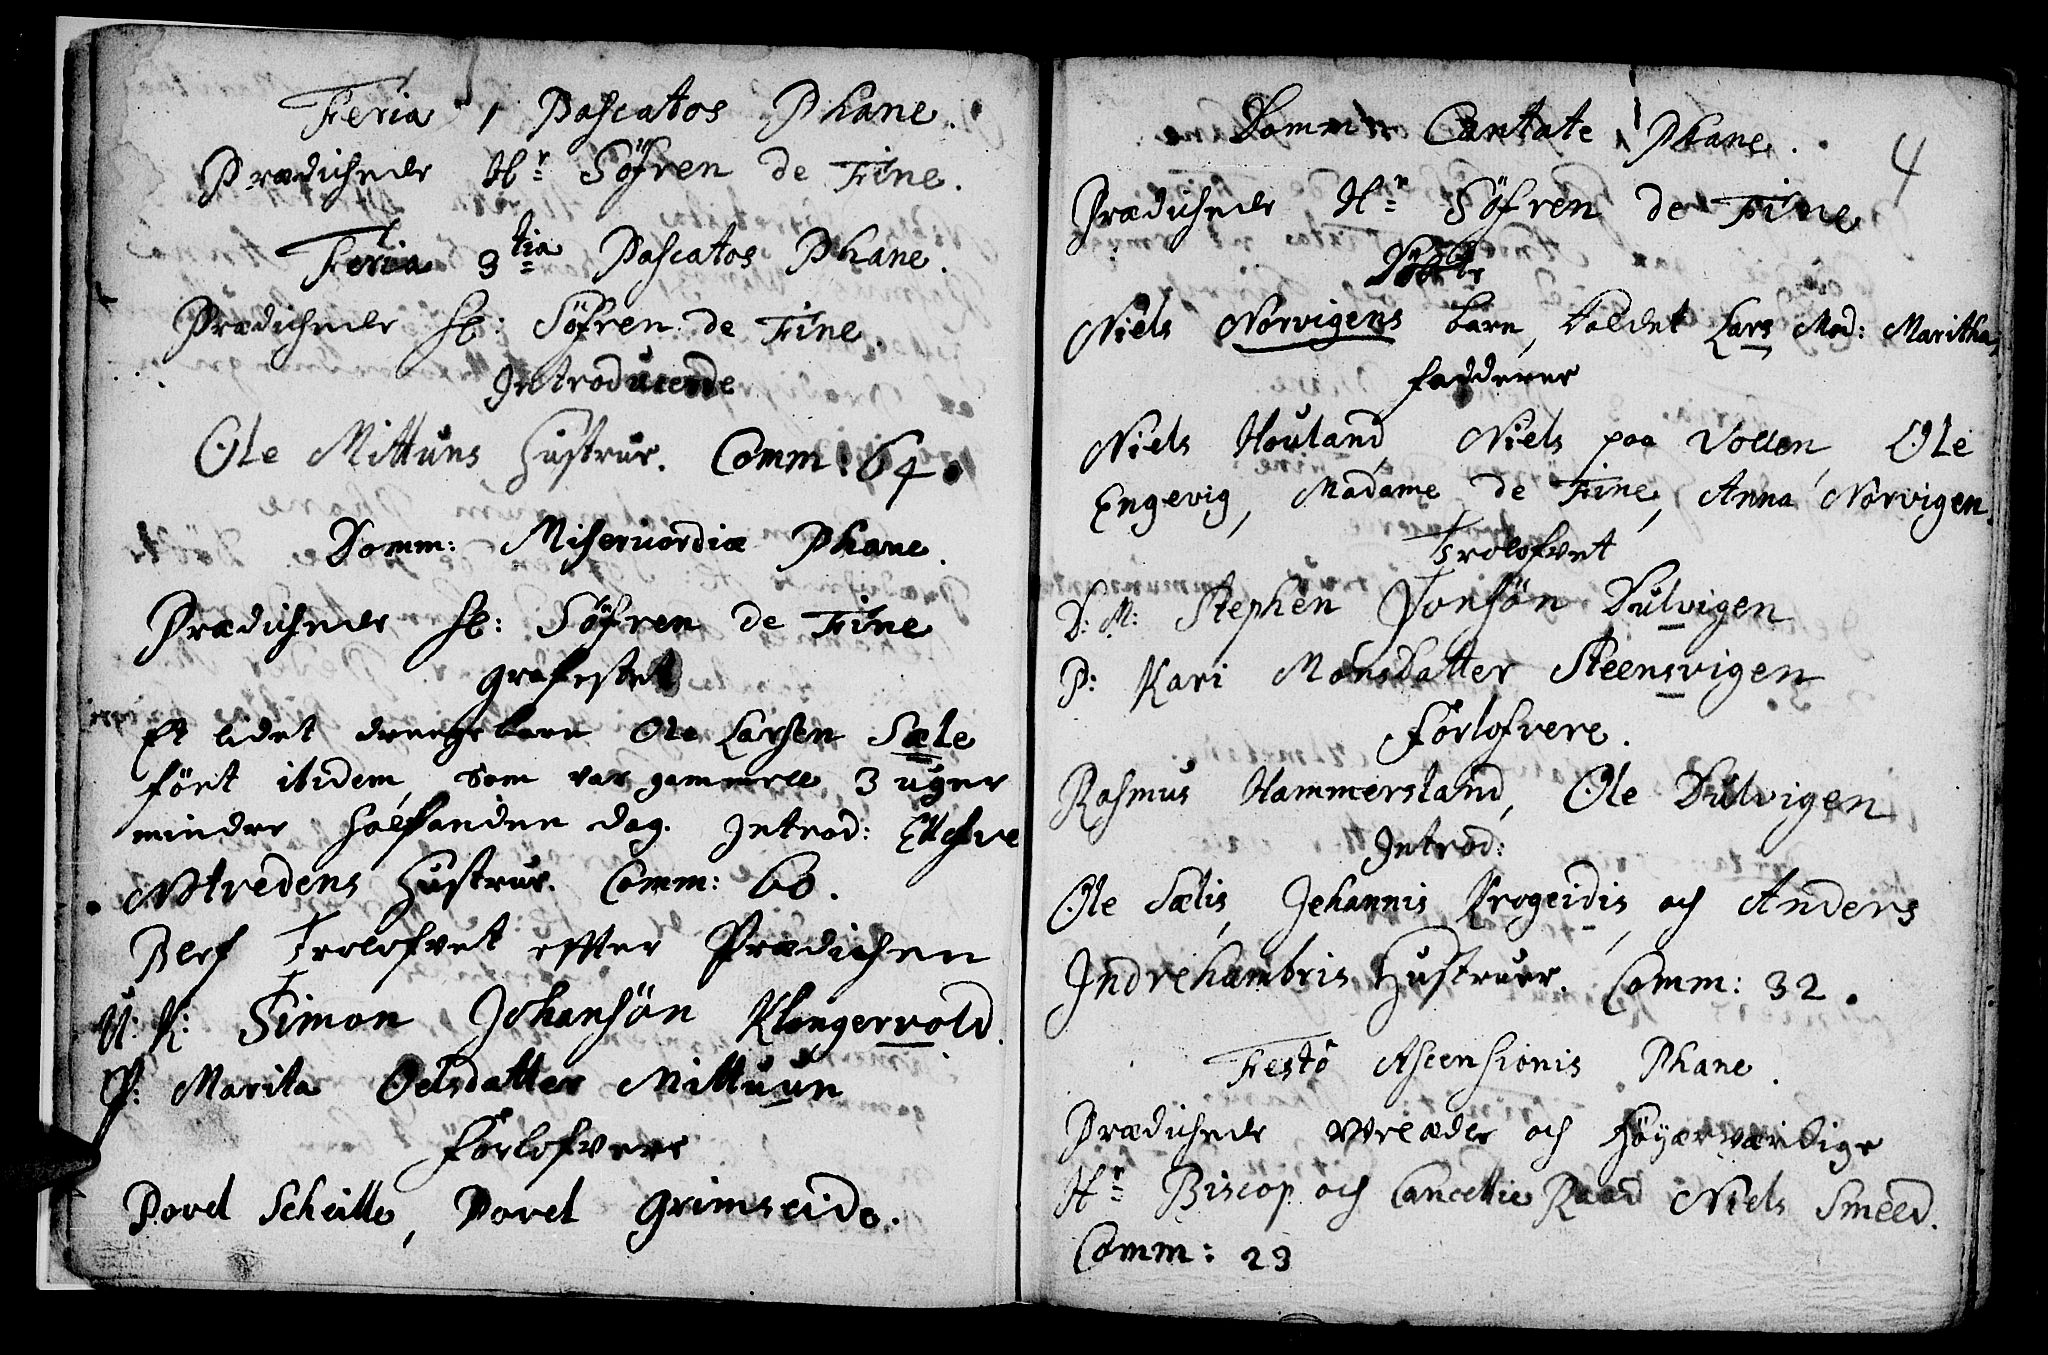 Feria 1 Pascatos Phane.
Prædichede Hr Söfren de Fine.
Feria 3tia Pascatos Phane.
Prædichede H: Söfren de Fine.
Introducerede
Ole Mittuns Hustrue. Comm: 64.
Domm: Misericordiæ Phane.
Prædichede H: Söfren de Fine
grafestet
Et lidet drenge barn Ole Larsen Sæle
fört ibidem, som var gammell 3 uger
mindre halfanden dag. Introd:
Natredens Hustrue. Comm: 60.
Blef Trolofvet effter Prædichen
U: K: Simon Johansön Klongervold.
P: Marita Oelsdatter Mittuun
Forlofvere
Povel Scheille, Povel Grimseide.
4
Domm: Cantate Phane.
Prædichede Hr Söfren de Fine
Niels Norvigens barn, kaldet Lars Mod: Maritha,
fadderne
Niels Houland, Niels paa Vollen, Ole
Engevig, Madame de Fine, Anna Norvigen.
Trolofvet
D: M: Stephen Jonsön Dulvigen
P: Kari Monsdatter Steensvigen
Forlofvere.
Rasmus Hammersland, Ole Dulvigen
Introd:
Ole Sælis, Johannis Krogeidis, och Anders
Indrehambris Hustruer. Comm: 32.
Festo Ascensionis Phane.
Prædichede Velædle och Höyærværdige
Hr Biscop och Cancellie Raad Niels Smeed.
Comm: 23